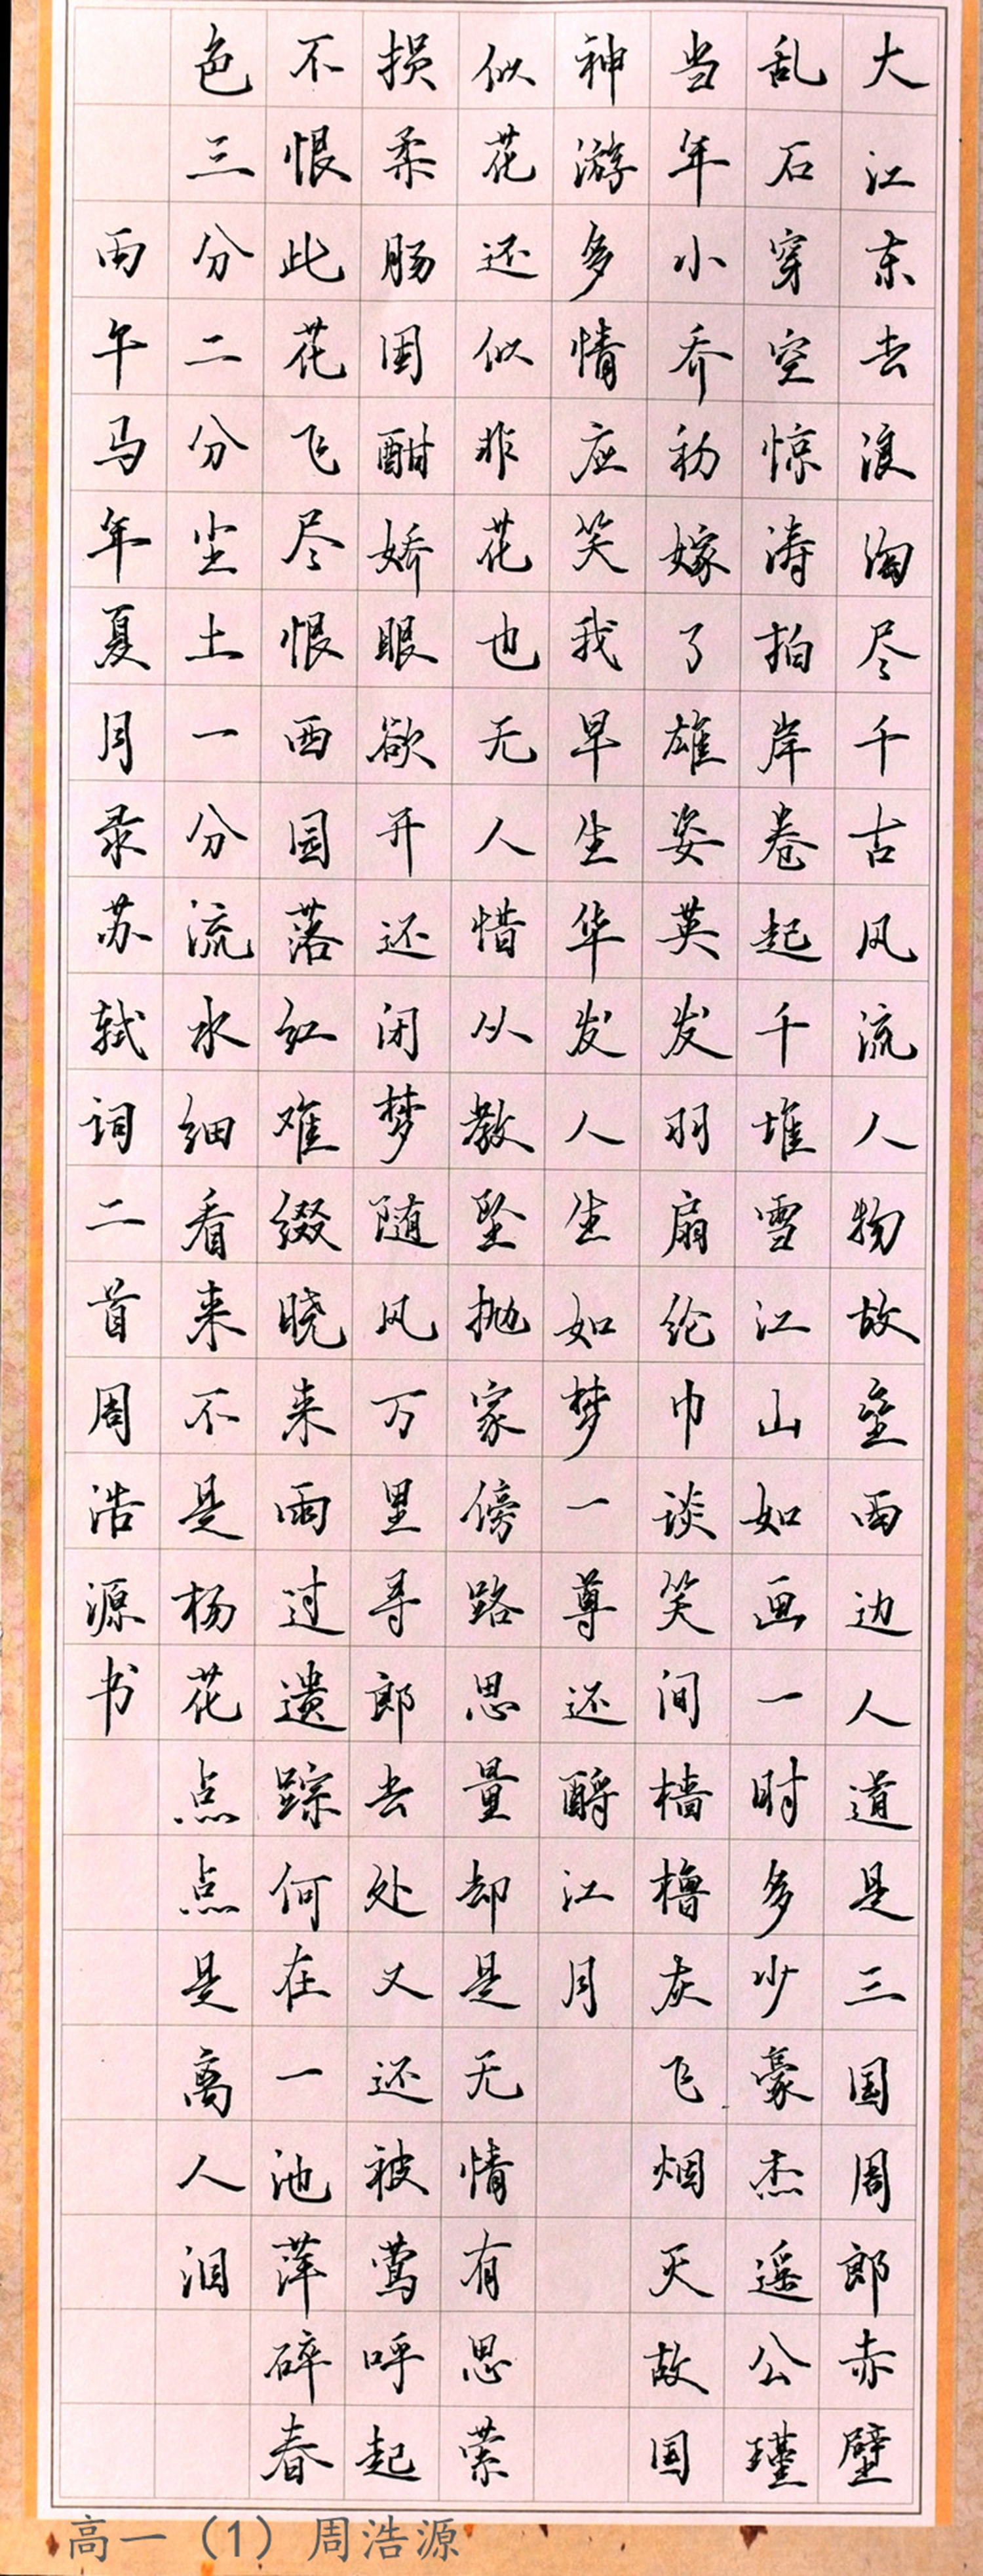 大江东去浪淘尽千古风流人物故垒西边人道是三国周郎赤壁
乱石穿空惊涛拍岸卷起千堆雪江山如画一时多少豪杰遥公瑾
当年小乔初嫁了雄姿英发羽扇纶巾谈笑间樯橹灰飞烟灭故国
神游多情应笑我早生华发人生如梦一尊还酹江月
似花还似非花也无人惜从教坠抛家傍路思量却是无情有思萦
损柔肠困酣娇眼欲开还闭梦随风万里寻郎去处又还被莺呼起
不恨此花飞尽恨西园落红难缀晓来雨过遗踪何在一池萍碎春
色三分二分尘土一分流水细看来不是杨花点点是离人泪
丙午马年夏月录苏轼词二首周浩源书
高一（1）周浩源